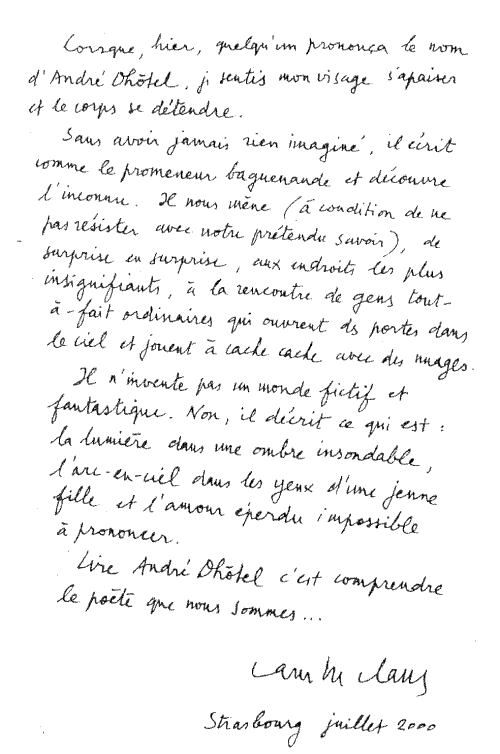 Lorsque, hier, quelqu'un prononça le nom
d'André Dhôtel, je sentis mon visage s'apaiser
et le corps se détendre.
Sans avoir jamais rien imaginé, il écrit
comme le promeneur baguenaude et découvre
l'inconnu. Il nous mène (à condition de ne
pas résister avec notre prétendu savoir), de
surprise en surprise, aux endroits les plus
insignifiants, à la rencontre de gens tout-
à-fait ordinaires qui ouvrent ds portes dans
le ciel et jouent à cache cache avec des nuages.
Il n'invente pas un monde fictif et
fantastique. Non, il décrit ce qui est :
la lumière dans une ombre insondable,
l'arc-en-ciel dans les yeux d'une jeune
fille et l'amour éperdu impossible
à prononcer.
Lire André Dhôtel c'est comprendre
le poète que nous sommes...
Camille Claus
Strasbourg juillet 2000